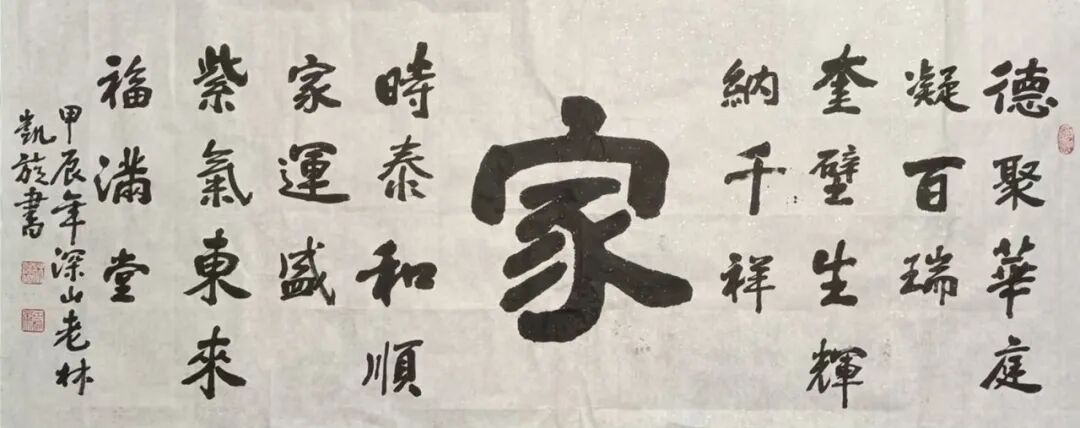 德聚華庭
凝百瑞
奎壁生輝
納千祥
家
時泰和順
家運盛
紫氣東來
福滿堂
甲辰年深山老林
凱旋書